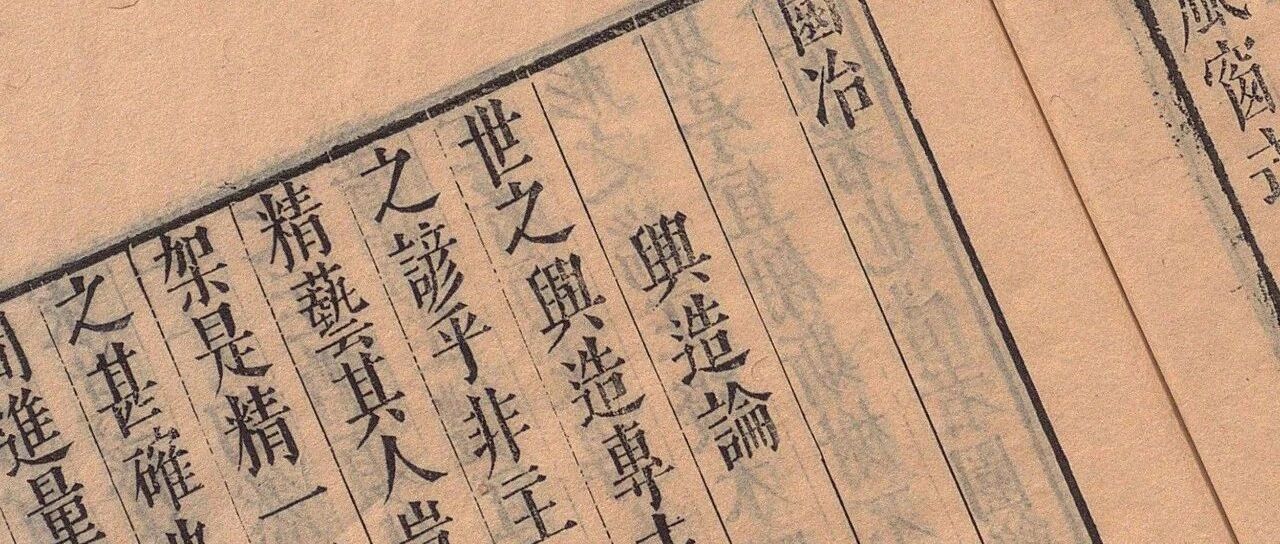 風窗
園冶
興造論
世之興造專
之諺乎非主
精藝其人豈
架是精一
之甚確
間進量